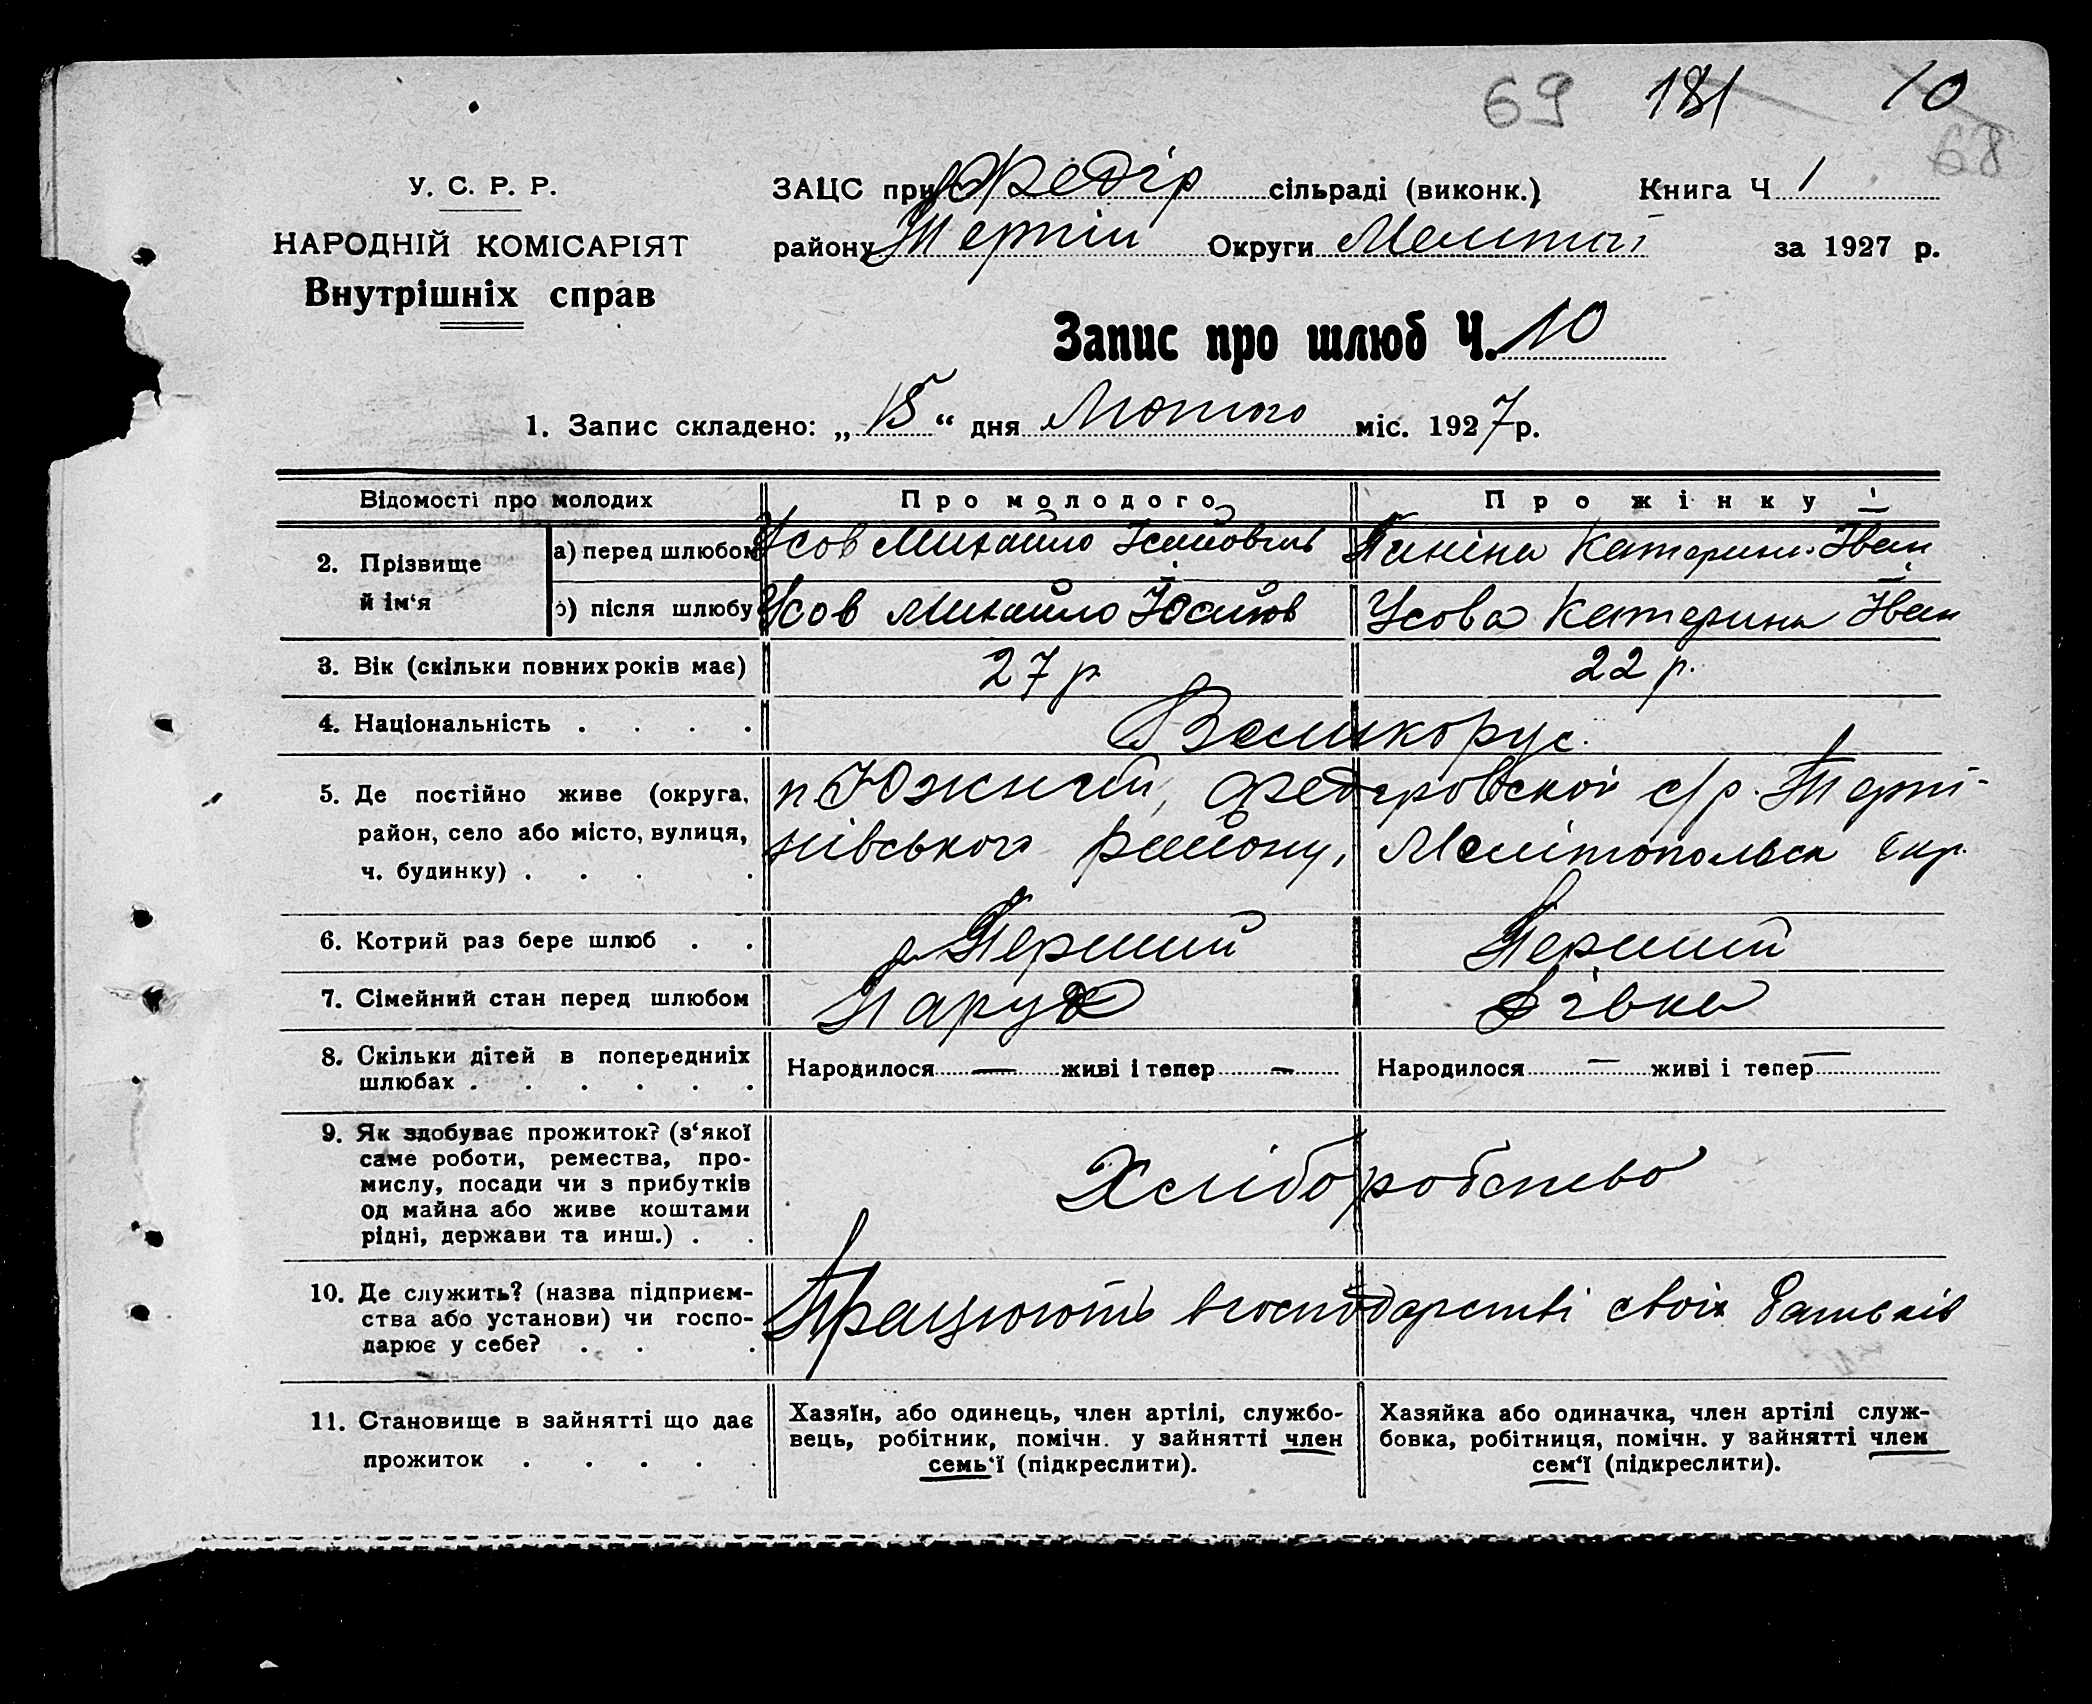 69 181 10
68
У. С. Р. Р.
НАРОДНІЙ КОМІСАРІЯТ
Внутрішніх справ
ЗАЦС при Федір сільраді (виконк.) Книга Ч 1
району Терпін Округи Меліт за 1927 р.
Запис про шлюб Ч. 10
1. Запис складено: „15“ дня Лютого міс. 1927 р.
Відомості про молодих Про молодого Про жінку
2. Прізвище й ім‘я
а) перед шлюбом Усов Михайло Катерина Іван
б) після шлюбу Усов Михайло Усова Катерина Іван
3. Вік (скільки повних років має) 27 р 22 р.
4. Національність . . . . Великорус.
5. Де постійно живе (округа, п. Южний, Федоровской с/р. Терпі-
район, село або місто, вулиця, нівського району, Мелітопольск окр.
ч. будинку) . . . .
6. Котрий раз бере шлюб . . Перший Перший
7. Сімейний стан перед шлюбом Парубок Дівка
8. Скільки дітей в попередниіх
шлюбах . . . . . . Народилося — живі і тепер — Народилося — живі і тепер —
9. Як здобуває прожиток? (з‘якої
саме роботи, ремества, про-
мислу, посади чи з прибутків
од майна або живе коштами
рідні, держави та инш.) . .
Хліборобство
10. Де служить? (назва підприєм-
ства або установи) чи госпо-
дарює у себе? . . .
Працюють в господарстві своіх батьків
11. Становище в зайнятті що дає
прожиток . . . . .
Хазяїн, або одинець, член артілі, службо-
вець, робітник, помічн. у зайнятті член
семь‘ї (підкреслити).
Хазяйка або одиначка, член артілі служ-
бовка, робітниця, помічн. у зайнятті член
сем‘ї (підкреслити).